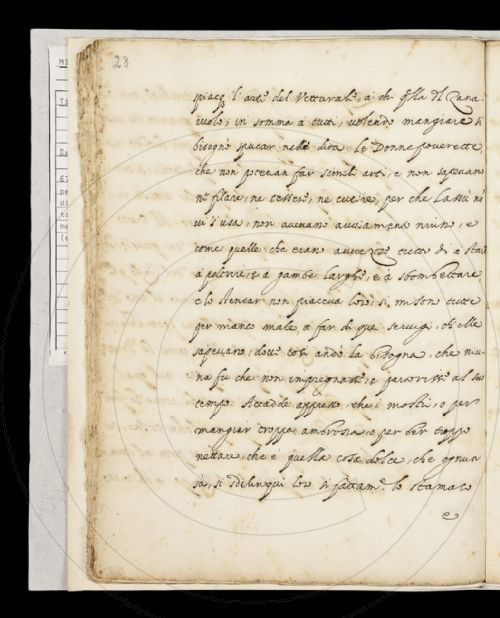 28
piacq l'arte del Vetturale, a chi q.lla del Zana
iuolo; in somma a tutti, uolendo mangiare li
bisognò sputar nelle dita. le Donne pouerette
che non poteuan far simili arti, e non sapeuano
ne filare, ne tessere, ne cucire, per che La sù nō
ui s'usa, non aueuano auuiamento niuno, e
come quelle che erano auuezze tutto dì a star
a sedere, e a gambe larghe, e a sbombettare,
e lo stentar non piaceua loro, si misono tutte
per manco male a far di que seruigi, ch'elle
sapeuano, doue così andò la bisogna, che niu-
na fu che non impregnasse, e parorisse al suo
tempo. Accadde appresso, che i molti, o per
mangiar troppa ambrosia, o per ber troppo
nettare, che è quella cosa dolce, che, ognun
sà, si sdilinquì loro sì fattam.te lo stomaco
e